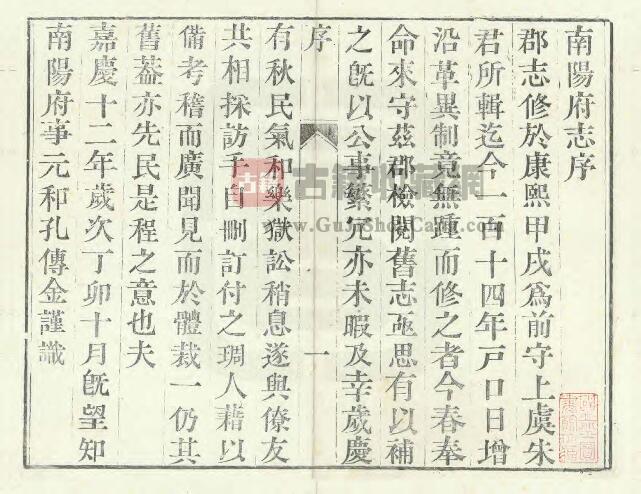 南陽府志序
郡志修於康熙甲戌爲前守上虞朱
君所輯迄今一百十四年戸口日增
沿革異制竟無踵而修之者今春奉
命來守茲郡檢閱舊志亟思有以補
之旣以公事繁冗亦未暇及幸歲慶
序
一
有秋民氣和樂獄訟稍息遂與僚友
共相採訪手自刪訂付之琱人藉以
備考稽而廣聞見而於體裁一仍其
舊葢亦先民是程之意也夫
嘉慶十二年歲次丁卯十月旣望知
南陽府事元和孔傳金謹識
古籍收藏網
www.GujiShouCang.com